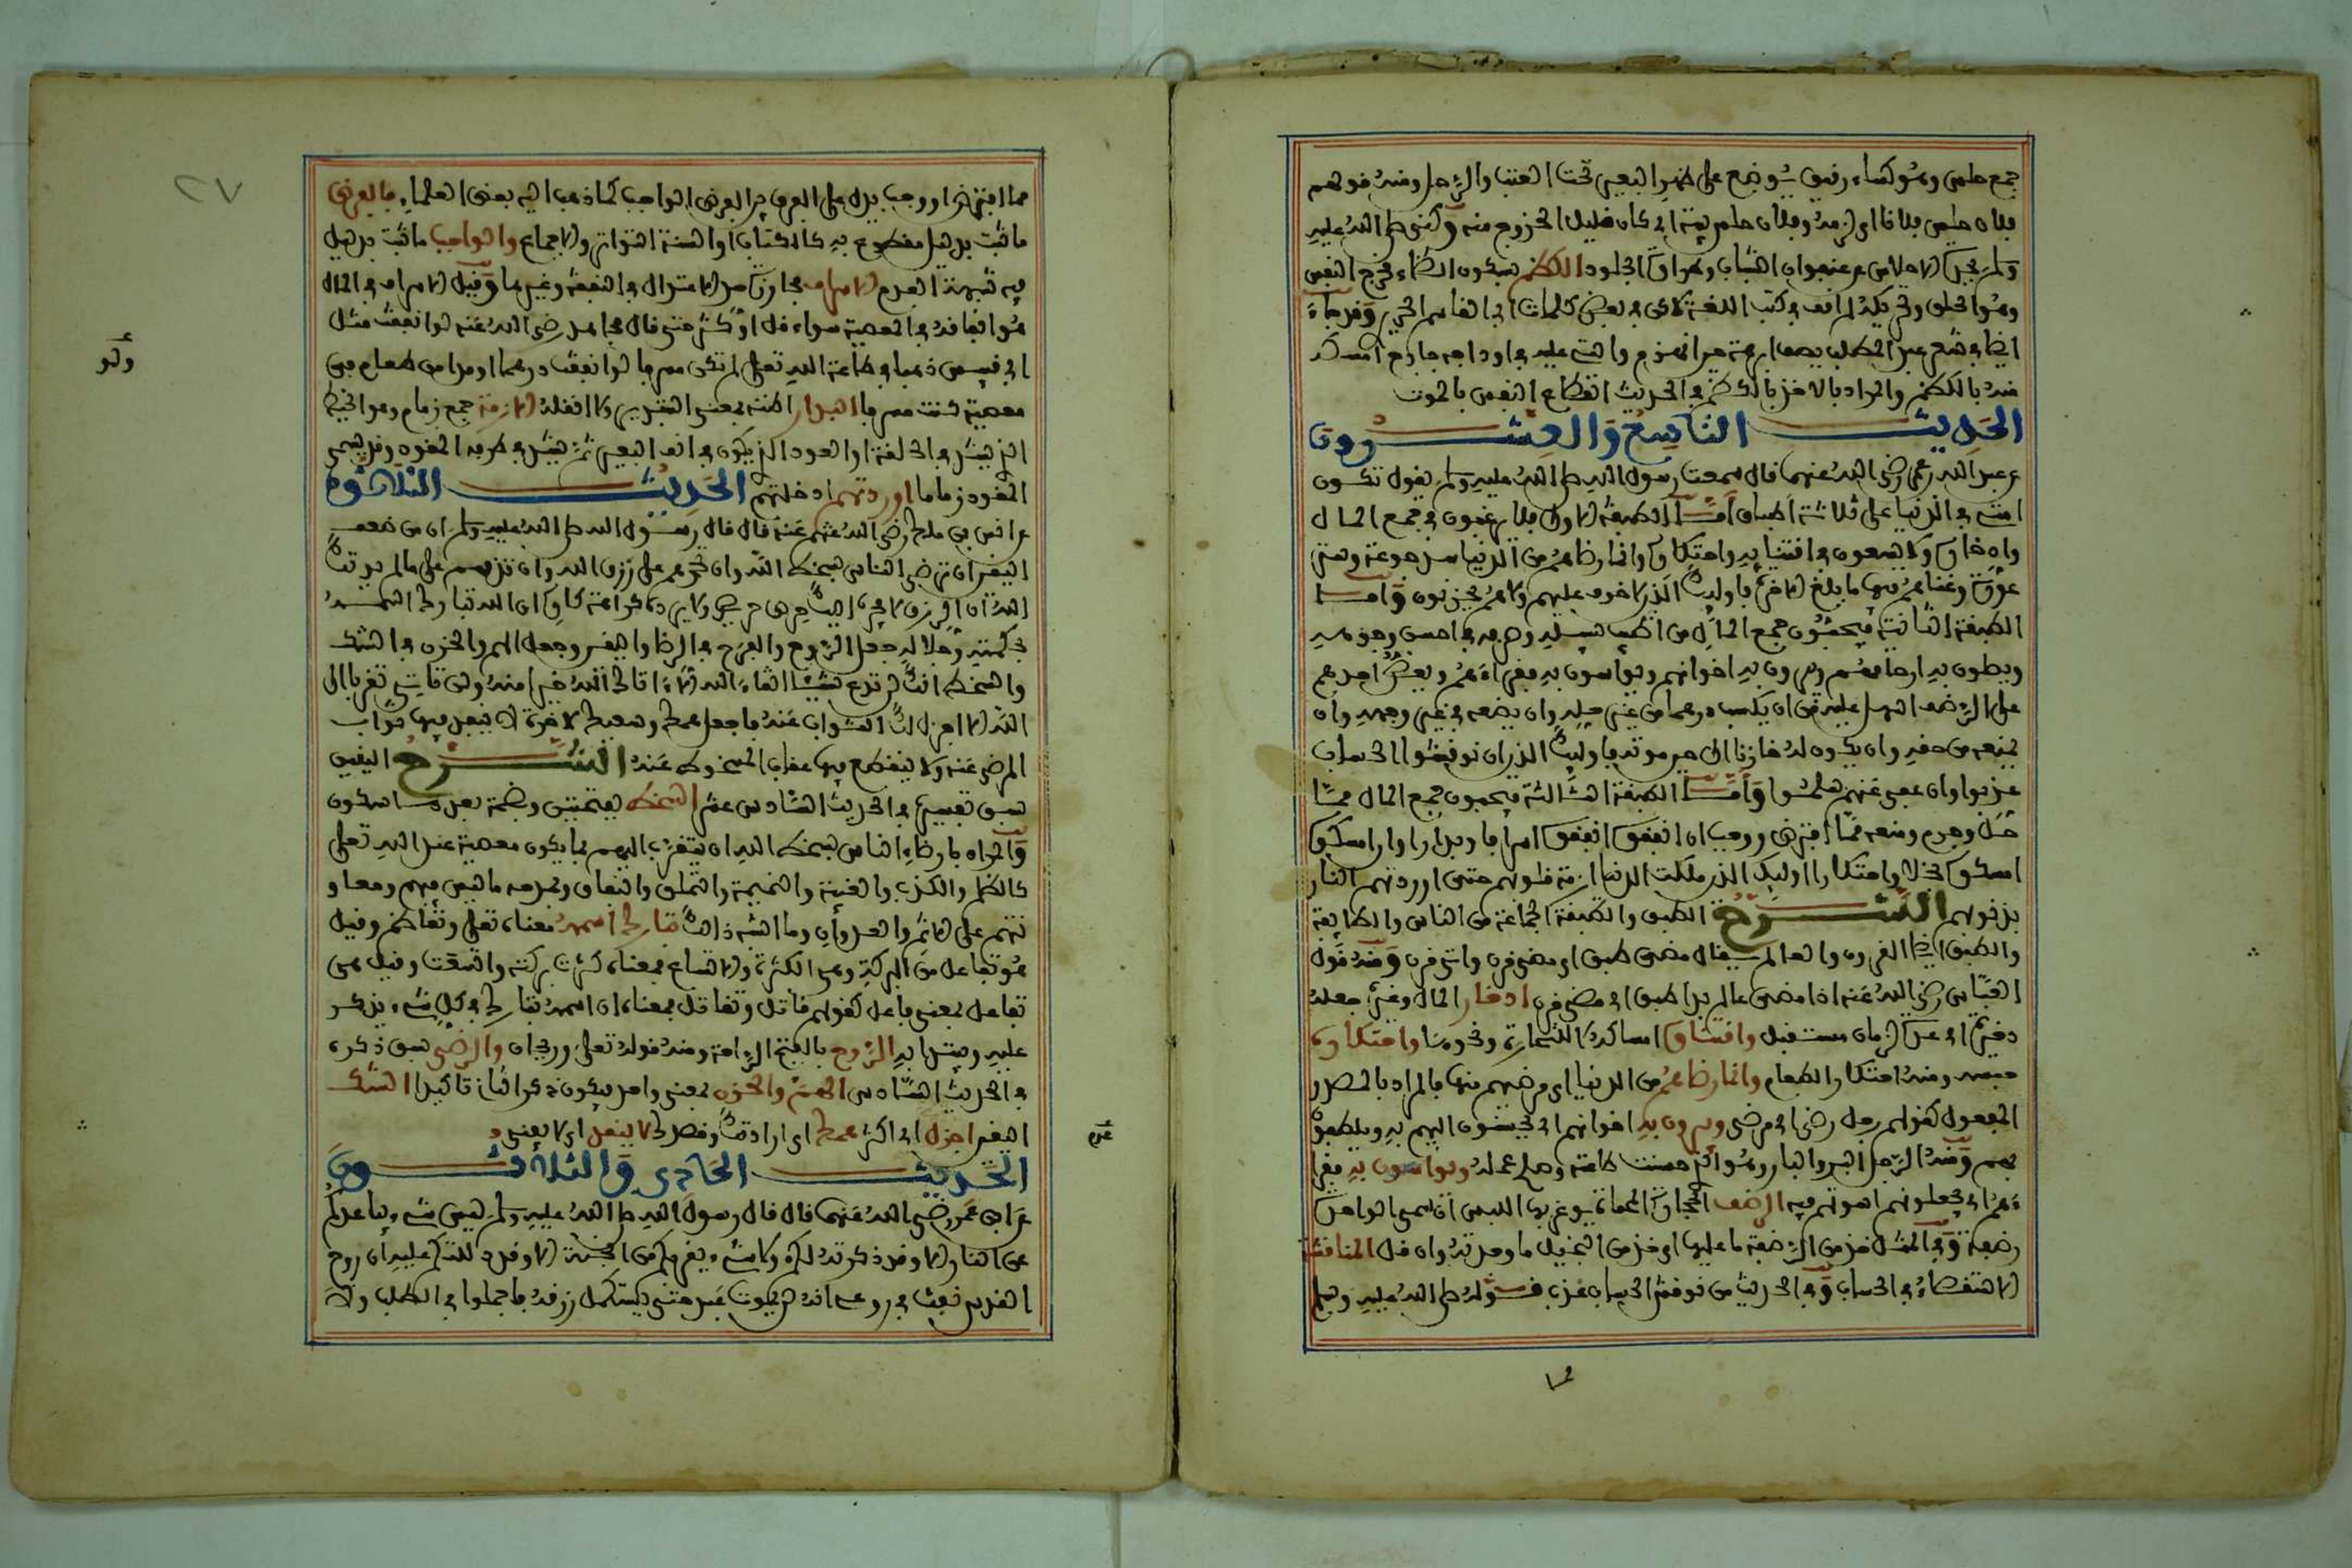 جمع حلس وهو كساء رفيق يوضع على ظهر البعير تحت القتب والرحل ومنه قولهم
فلان حلس فلانا اى لزمه وفلان حلس بيته اى كان قليل الخروج منه
الاحلاس عنجوان الشباب الجلود الكظم بسكون الظاء مخرج النفس
وهو الحلق كتب اللغة بعض كلمات
منه بالكظم والمراد بالاخذ بالكظم في الحديث انقطاع النفس بالموت
الحديث التاسع والعشرون
عن عبد الله رضى الله عنهما قال سمعت رسول الله صلى الله عليه وسلم يقول تكون
امتى في الدنيا على ثلاثة اطباق اما الطبقة الاولى فلا يرغبون في جمع المال
واذخاره ولا يسعون في اقتنايه واحتكاره وانما رضاهم من الدنيا سد جوعة وستر
عورة وغناهم فيها ما بلغ الاخرة فاوليك الذين لا خوف عليهم ولا هم يحزنون واما
الطبقة الثانية فيحبون جمع المال من اطيب سبيله وصرفه في احسن وجوهه
ويصلون به ارحامهم ويبرون به اخوانهم ويواسون به فقراءهم ويعض احدهم
على الرضف اسهل عليه من ان يكسب درهما من غير حله وان يضعه في غير وجهه وان
يمنعه من حقه وان يكون له خازنا الى حين موته فاوليك الذين ان نوقشوا الحساب
عذبوا وان عفى عنهم سلموا واما الطبقة الثالثة فيحبون جمع المال مما
حل وحرم ومنعه مما افترض ووجب ان انفقوه انفقوه اسرافا وبدارا وان امسكوه
امسكوه بخلا واحتكارا اوليك الذين ملكت الدنيا ازمة قلوبهم حتى اوردتهم النار
بذنوبهم الشرح الطبق والطبقة الجماعة من الناس والطابعة
والطبق ايضا القرون والعالم يقال مضى طبق اى مضى قرن واتى قرن ومنه قول
العباس رضى الله عنه اذا مضى عالم بدا طبق اى مضى قرن ادخار المال وغيره جعله
ذخيرة اى عدة لزمان مستقبل واقتناؤه امساكه للتجارة ونحوها واحتكاره
حبسه ومنه احتكار الطعام وانما رضاهم من الدنيا اى مرضيهم منها فالمراد بالمصدر
المفعول كقولهم رجل رضى اى مرضى ويبرون به اخوانهم اى يحسنون اليهم به ويلطفون
بهم ومنه الرجل البر والبار وهو الذى حسنت طاعته وصلح عمله ويواسون به فقرا
ءهم اى يجعلونهم اسوتهم فيه الرضف الحجارة المحماة يوغر بها اللبن الواحدة
رضفة وفي المثل خذ من الرضفة ما عليها اى خذ من البخيل ما وجدته وان قل المناقشة
الاستقصاء في الحساب وفي الحديث من نوقش الحساب عذب قوله صلى الله عليه وسلم
مما افترض او وجب يدل على الفرق بين الفرض والواجب كما ذهب اليه بعض العلماء فالفرض
ما ثبت بدليل مقطوع به كالكتاب او السنة المتواترة والاجماع والواجب ما ثبت بدليل
فيه شبهة العدم الاسراف مجاوزة حد الاعتدال في النفقة وغيرها وقيل الاسراف في المال
هو انفاقه في المعصية سواء قل او كثر حتى قال مجاهد رضى الله عنه لو انفقت مثل
ابى قبيس ذهبا في طاعة الله تعلى لم تكن مسرفا ولو انفقت درهما او مدا من طعام في
معصية كنت مسرفا البدار الازمة جمع زمام وهو الخيط
الذى يشد في الحلقة او العود الذى يكون في انف البعير ثم يشد في طرفه المقود وقد يسمى
المقود زماما اوردتهم ادخلتهم الحديث الثلاثون
عن انس بن ملك رضى الله عنه قال قال رسول الله صلى الله عليه وسلم ان من ضعف
اليقين ان ترضى الناس بسخط الله وان تحمدهم على رزق الله وان تذمهم على ما لم يوتك
الله ان رزق لا يجره اليك حرص حريص ولا يرده كراهة كاره ان الله تبارك اسمه
بحكمته وجلاله جعل الروح والفرح في الرضا واليقين وجعل الهم والحزن في الشك
والسخط انك لن تدع شيئا اتقاء الله الا اتاك الله خيرا منه ولن تاتى تقربا الى
الله الا اجزل لك الثواب عنه فاجعل همك وسعيك لاخرة لا ينفد فيها ثواب
المرضى عنه ولا ينقطع فيها عقاب المسخوط عنه الشرح اليقين
سبق تفسيره في الحديث السادس عشر السخط بفتحتين وبضمة بعدها سكون
والمراد بارضاء الناس بسخط الله ان يتقرب اليهم بما يكون معصية عند الله تعلى
كالظلم والكذب والغيبة والنميمة والتملق والنفاق ومدحه ما ليس فيهم ومعاو
نتهم على الاثم والعدوان وما اشبه ذلك تبارك اسمه معناه تعلى وتعاظم وقيل
هو تفاعل من البركة وهى الكثرة والاتساع بمعناه كثرت بركته واتسعت وقيل هى
تفاعل بمعنى فاعل كقولهم قاتل وتقاتل بمعناه ان اسمه تبارك في كل شىء يذكر
عليه ويبتدا به الروح بالفتح الراحة ومنه قوله تعلى وريحان والرضى سبق ذكره
في الحديث السادس الهم والحزن بمعنى واحد فيكون ذكر الثانى تاكيدا الشك
اليقين اجزل اى اكثر همك اى ارادتك وقصدك لا ينفد اى لا يفنى
الحديث الحادى والثلاثون
عن ابن عمر رضى الله عنهما قال قال رسول الله صلى الله عليه وسلم ليس شىء يباعدكم
من النار الا وقد ذكرته لكم ولا شىء يقربكم من الجنة الا وقد دللتكم عليه ان روح
القدس نفث في روعى انه لن يموت عبد حتى يستكمل رزقه فاجملوا في الطلب ولا
ولو
٢٧